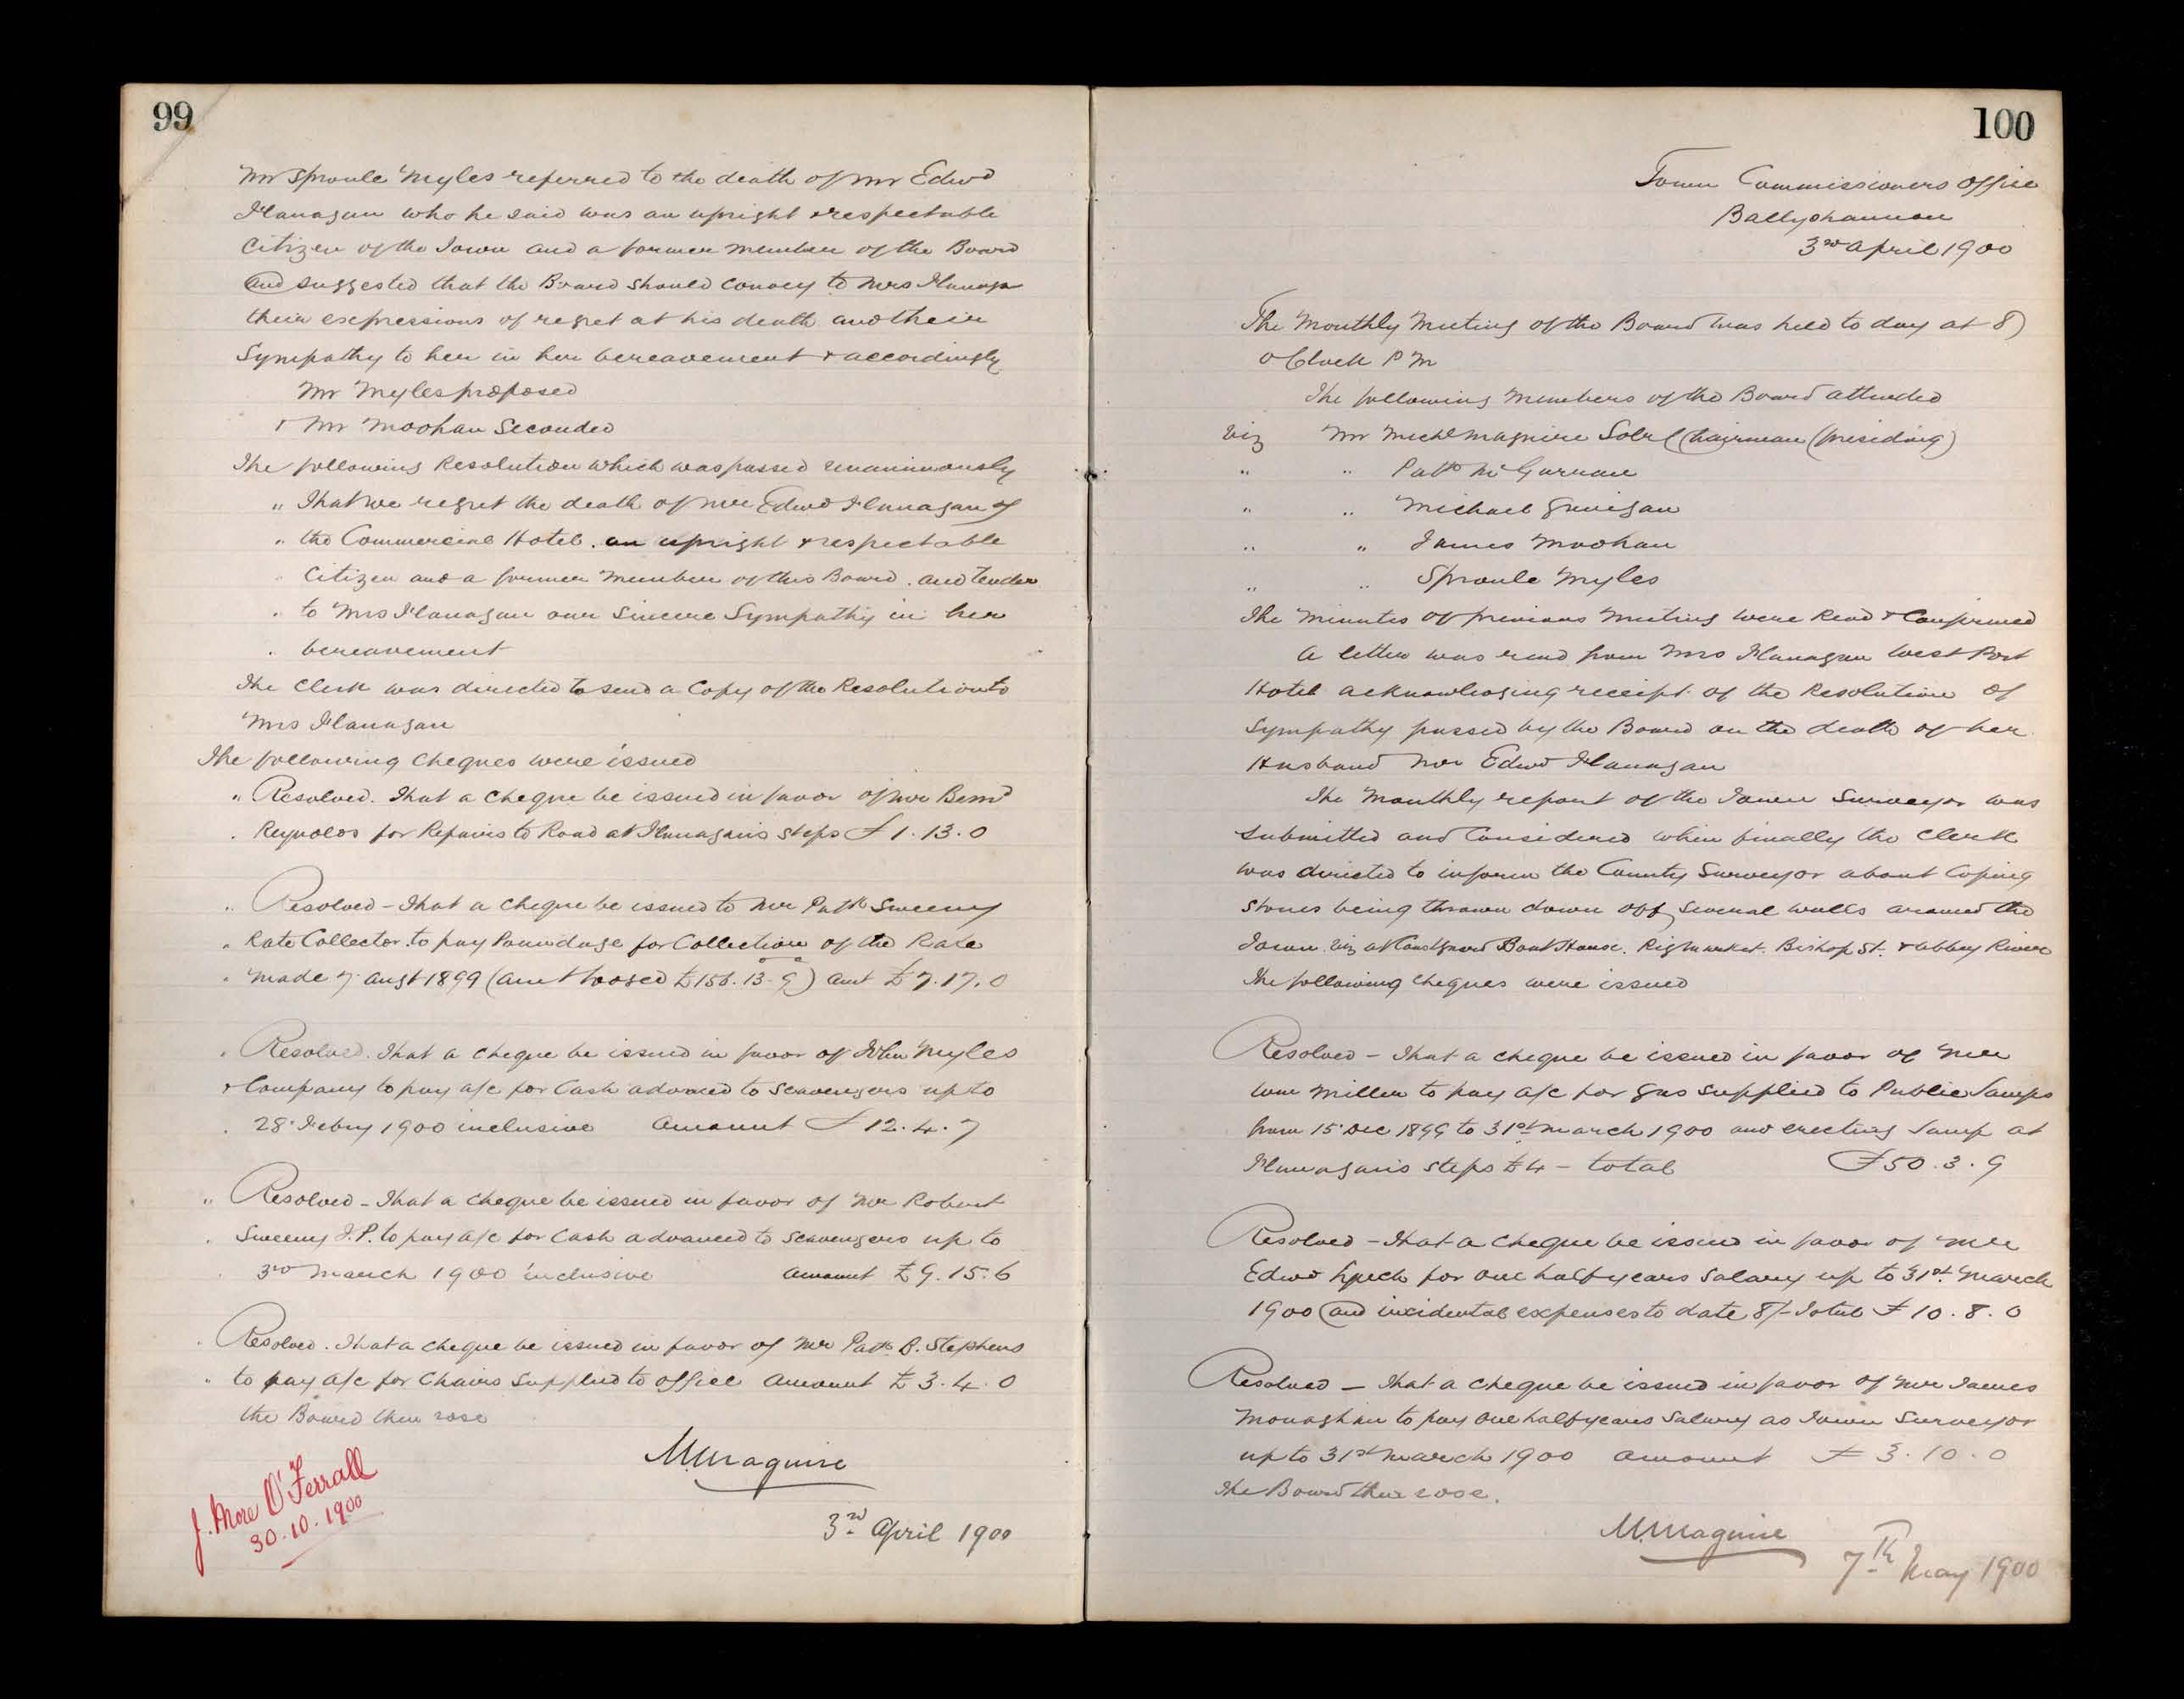 99
Mr Sproule Myles referred to the death of Mr Edwd
Flanagan who he said was an upright & respectable
Citizen of the Town and a former member of the Board
and suggested that the Board should convey to Mrs Flanagan
their expressions of regret at his death and their
Sympathy to her in her bereavement & accordingly
Mr Myles proposed
& Mr Moohan Seconded
The following Resolution which was passed unanimously
" That we regret the death of Mr Edwd Flanagan of
" the Commercial Hotel. an upright & respectable
" Citizen and a former Member of this Board. and tender
" to Mrs Flanagan our Sincere Sympathy in her
" bereavement
The Clerk was directed to send a Copy of the Resolution to
Mrs Flanagan
The following Cheques were issued
" Resolved. That a Cheque be issued in favor of Mr Bernd
" Reynolds for Repairs to Road at Flanagan's Steps £1.13.0
" Resolved - That a Cheque be issued to Mr Patk Sweeny
" Rate Collector. to pay Poundage for Collection of the Rate
" Made 7 Augst 1899 (Amt £156.13.9) Amt £7.17.0
" Resolved. That a Cheque be issued in favor of John Myles
& Company to pay a/c for Cash advanced to Scavengers up to
" 28 Febry 1900 inclusive Amount £12.4.7
" Resolved - That a Cheque be issued in favor of Mr Robert
" Sweeny J.P. to pay a/c for Cash advanced to Scavengers up to
" 3rd March 1900 inclusive Amount £9.15.6
" Resolved. That a Cheque be issued in favor of Mr Patk B. Stephens
" to pay a/c for Chairs Supplied to Office Amount £3.4.0
the Board then rose
M. Maguire
3rd April 1900
J. More O'Ferrall
30.10.1900
100
Town Commissioners Office
Ballyshannon
3rd April 1900
The Monthly Meeting of the Board was held to day at 8
O'Clock P M
The following Members of the Board attended
Viz Mr Michl Maguire Solr Chairman (presiding)
" " Patk McGurran
" " Michael Gavigan
" " James Moohan
" " Sproule Myles
The Minutes of previous Meeting were Read & Confirmed
A letter was read from Mrs Flanagan West Port
Hotel acknowledging receipt of the Resolution of
Sympathy passed by the Board on the death of her
Husband Mr Edwd Flanagan
The Monthly report of the Town Surveyor was
Submitted and Considered when finally the Clerk
was directed to inform the County Surveyor about Coping
Stones being thrown down off several walls around the
Town. Viz at Coastguard Boat House. Pigmarket. Bishop St. & Abbey River
The following Cheques were issued
Resolved - That a Cheque be issued in favor of Mr
Wm Miller to pay a/c for gas supplied to Public Lamps
from 15 Dec 1899 to 31st March 1900 and erecting Lamp at
Flanagan's Steps £4 - total £50.3.9
Resolved - That a Cheque be issued in favor of Mr
Edwd Lynch for one half years Salary up to 31st March
1900 and incidental expenses to date 8/- Total £10.8.0
Resolved - That a Cheque be issued in favor of Mr James
Monaghan to pay One half years Salary as Town Surveyor
up to 31st March 1900 Amount £3.10.0
The Board then rose.
M. Maguire
7th May 1900